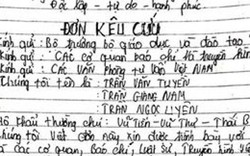 Độc lập - tự do - hạnh phúc
ĐƠN KÊU CỨU
Kính gửi: Bộ trưởng bộ giáo dục và đào tạo
Kính gửi: Các cơ quan báo chí và truyền hình
Kính gửi: Các Văn phòng tư vấn Việt NAM
Chúng tôi tên là: TRẦN VĂN TUYÊN
TRẦN GIANG NAM
TRẦN NGỌC LUYÊN
khẩu thường trú: Vũ Tiến - Vũ Thư - Thái B
chúng tôi Viết đơn này xin được trình bày với
các cơ quan, Báo chí, luật sư, Truyền h